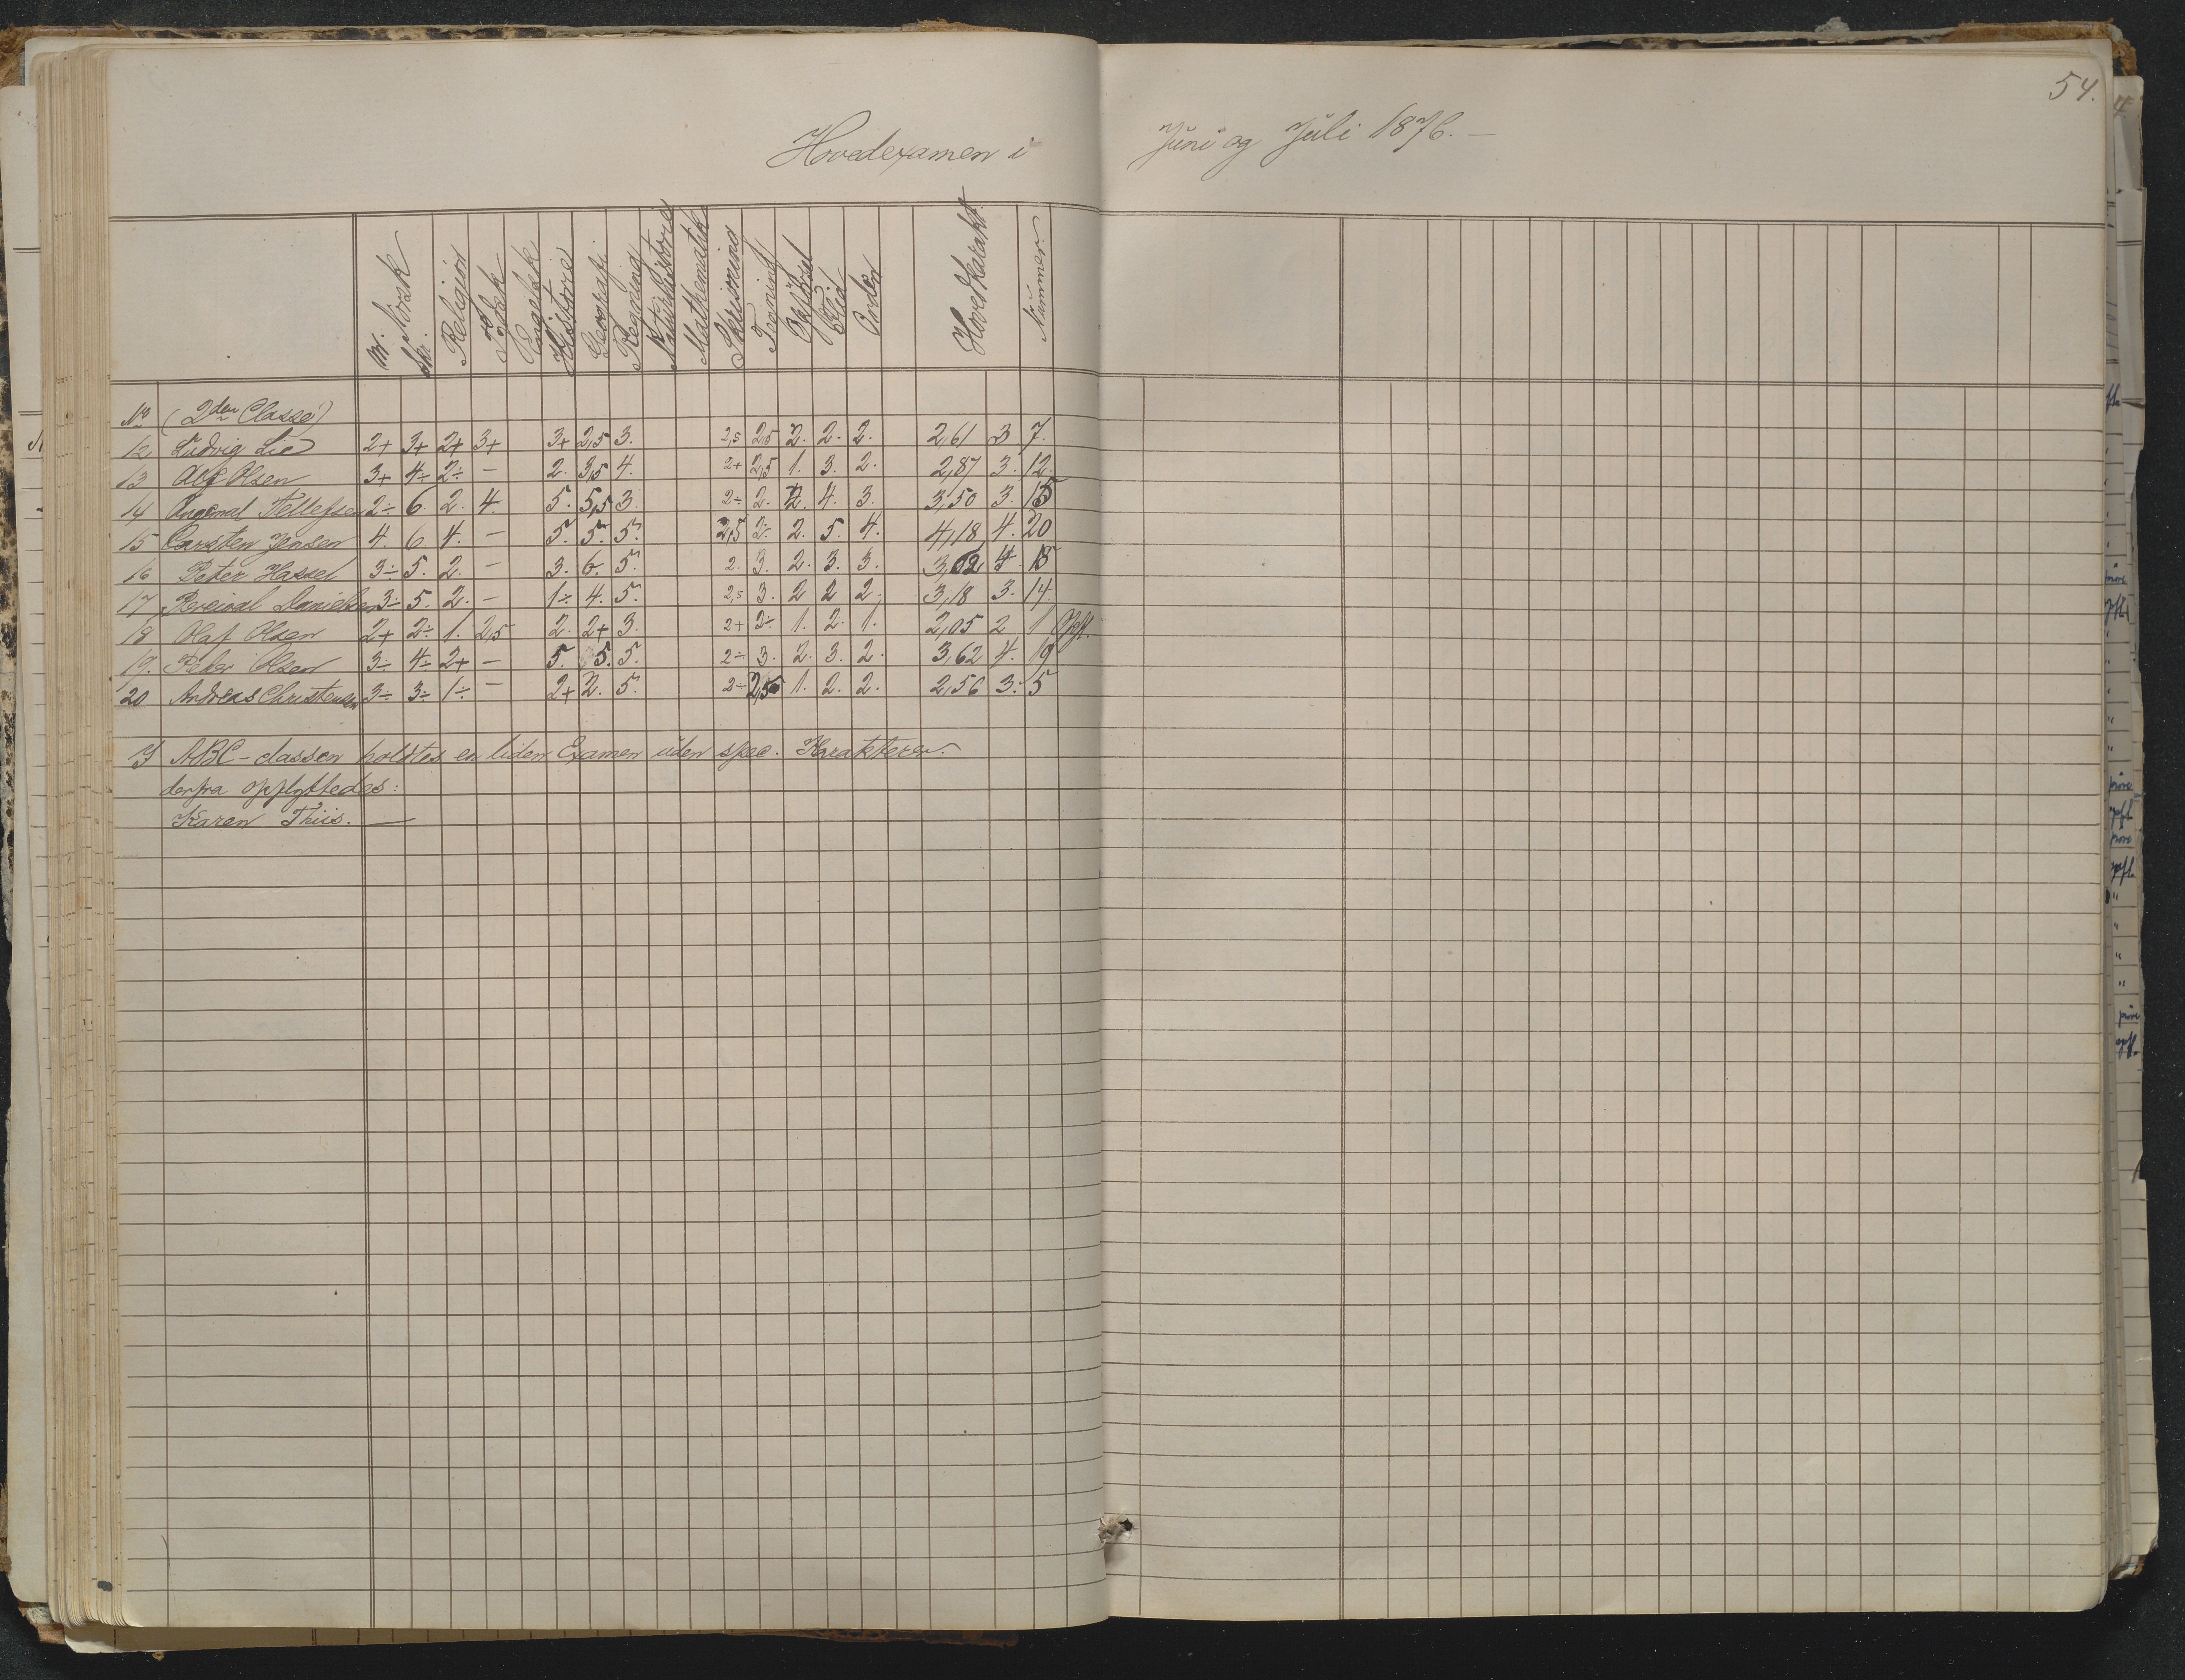 54.
Hovedexamen i Juni og Juli 1876. —
M. Skr. Norsk Religion Tydsk Engelsk Historie Geografi Regning Naturhistorie Mathematik Skrivning Tegning Opførsel Flid Orden Hovedkarakt. Nummer
No (2den Classe)
12 Ludvig Lie 2+ 3+ 2+ 3+ 3+ 2,5 3. 2,5 2,5 2. 2. 2. 2,61 3 7.
13 Alf Olsen 3+ 4÷ 2÷ — 2. 3,5 4. 2+ 2,5 1. 3. 2. 2,87 3. 12.
14 Tellefsen 2÷ 6. 2. 4. 5. 5,5 3. 2÷ 2. 2. 4. 3. 3,50 3. 15
15 Carsten Jensen 4. 6 4. — 5. 5. 5. 2,5 2÷ 2. 5. 4. 4,18 4. 20
16 Peter Hassel 3÷ 5. 2. — 3. 6. 5. 2. 3. 2. 3. 3. 3,62 4. 18
17 Percival Danielsen 3÷ 5. 2. — 1÷ 4. 5. 2,5 3. 2 2 2. 3,18 3. 14.
18 Olaf Olsen 2+ 2÷ 1. 2,5 2. 2+ 3. 2+ 3÷ 1. 2. 1. 2,05 2 1 Opfl.
19. Peter Olsen 3÷ 4÷ 2+ — 5. 5. 5. 2÷ 3. 2. 3. 2. 3,62 4. 19
20 Andreas Christensen 3÷ 3÷ 1÷ — 2+ 2. 5. 2÷ 2,5 1. 2. 2. 2,56 3. 5
I ABC-classen holdtes en liden Examen uden spec. Karakterer.
derfra opflyttedes:
Karen Thiis. —